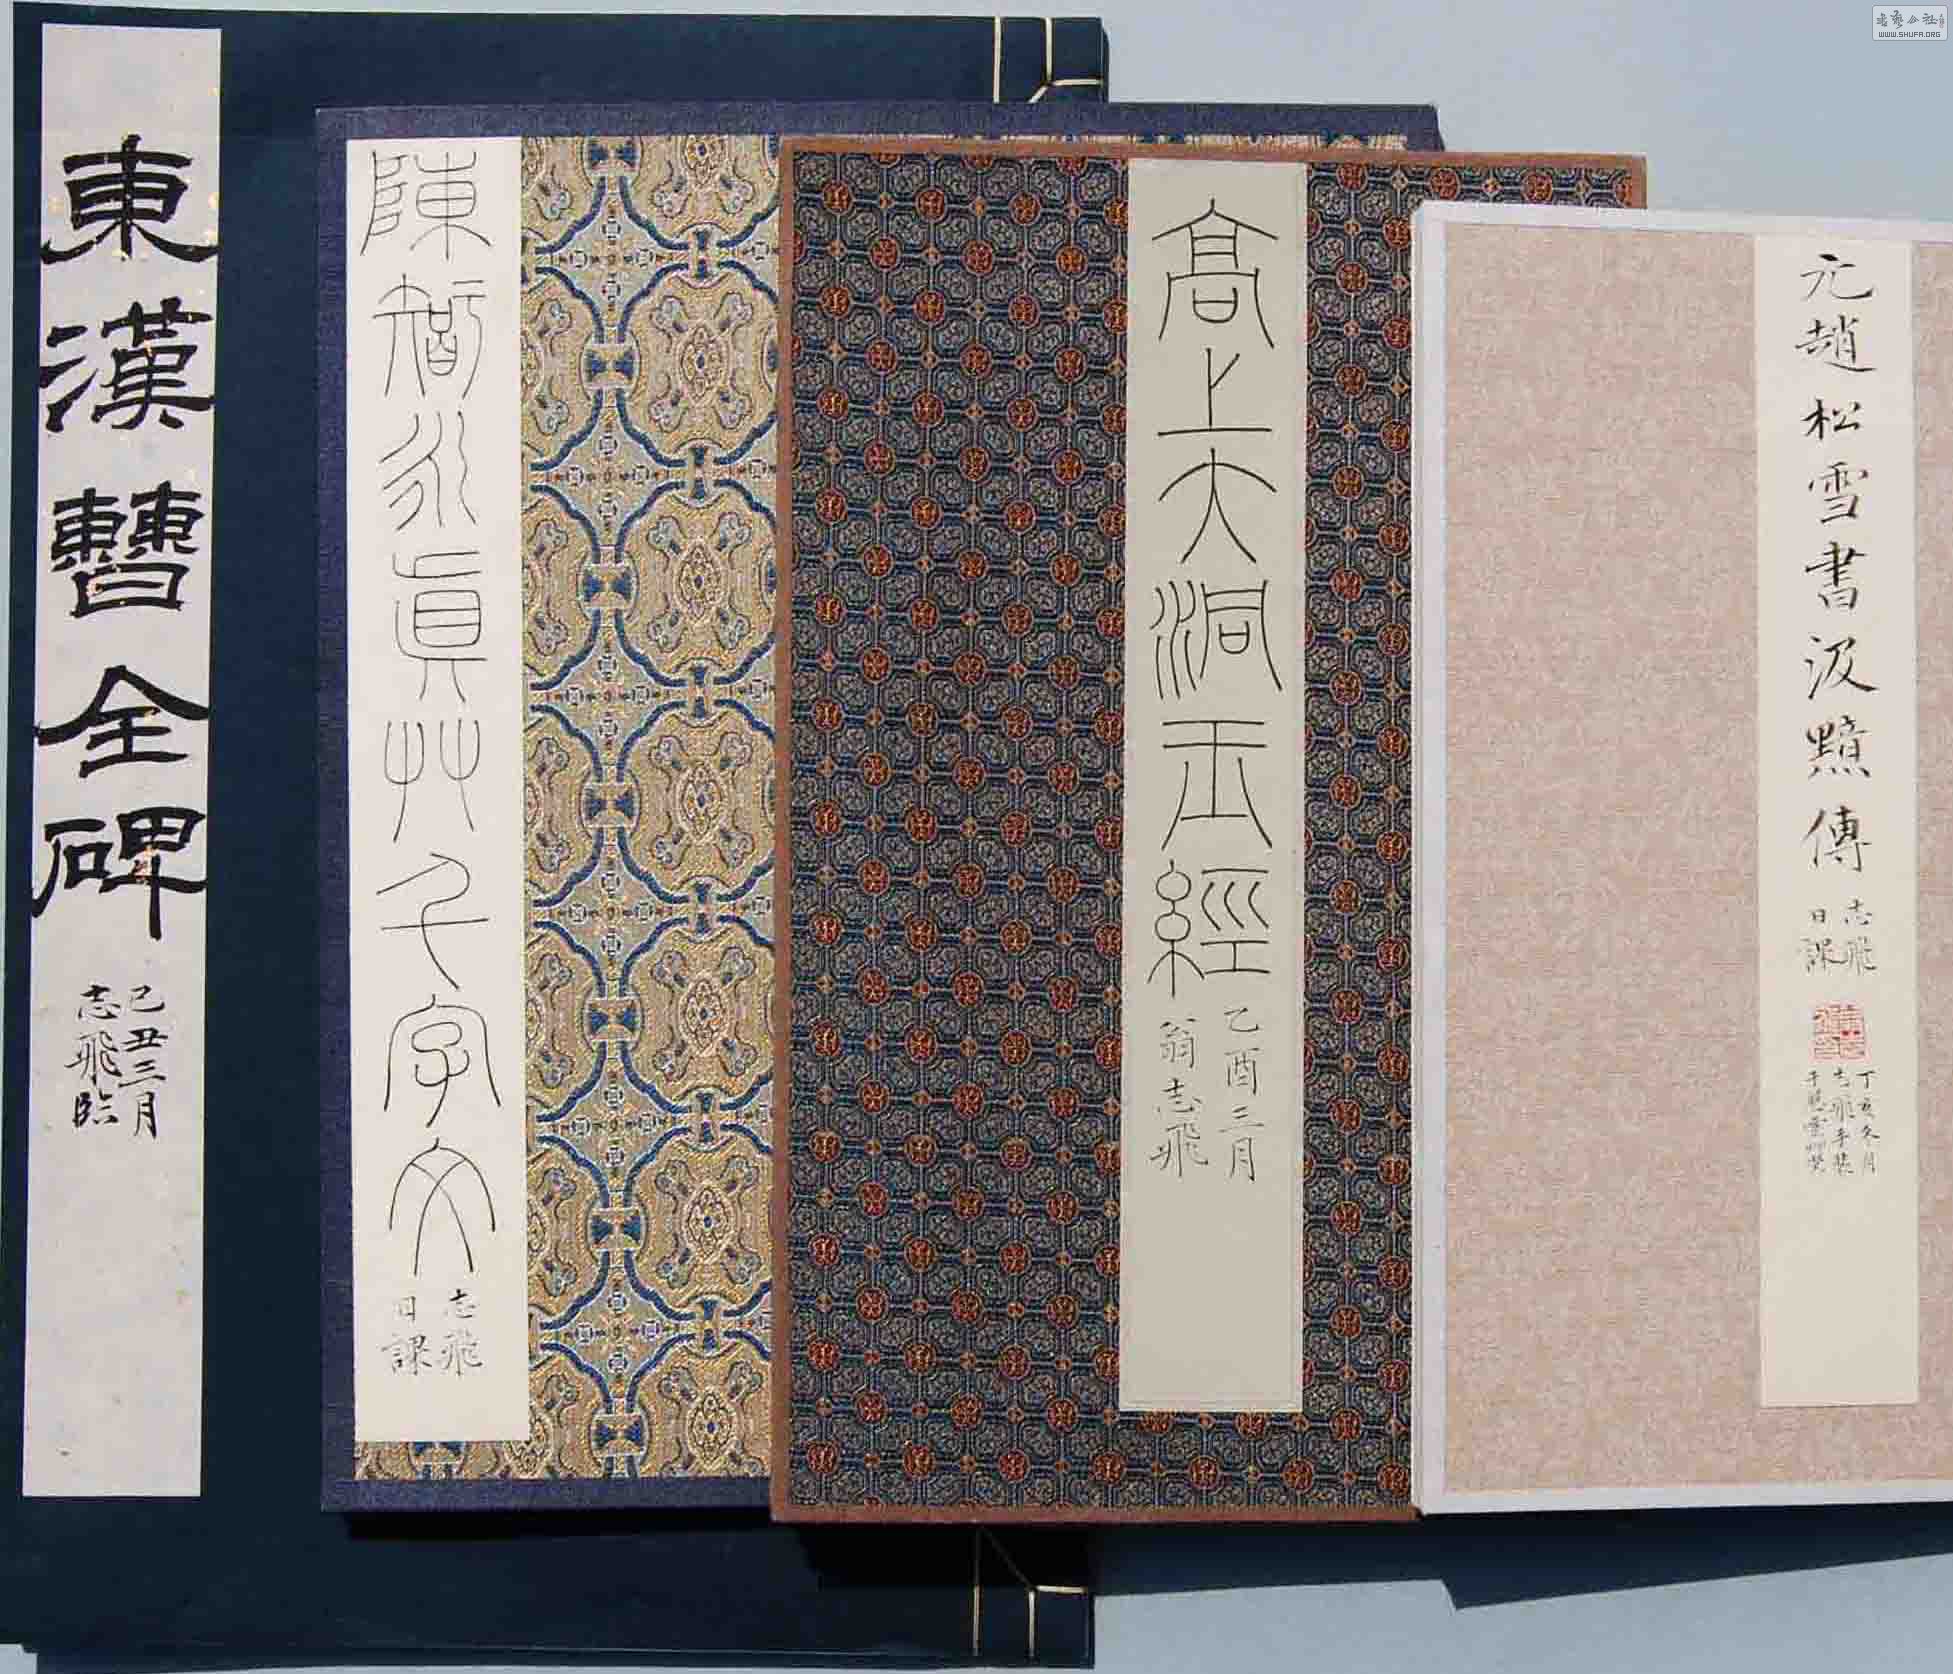 東漢曹全碑
己丑三月
志飛臨
陳智永眞艸千字文
志飛
日課
髙上大洞玉經
乙酉三月
翁志飛
元趙松雪書汲黯傳
志飛
日課
丁亥冬月
志飛手裝
WWW.SHUFA.ORG